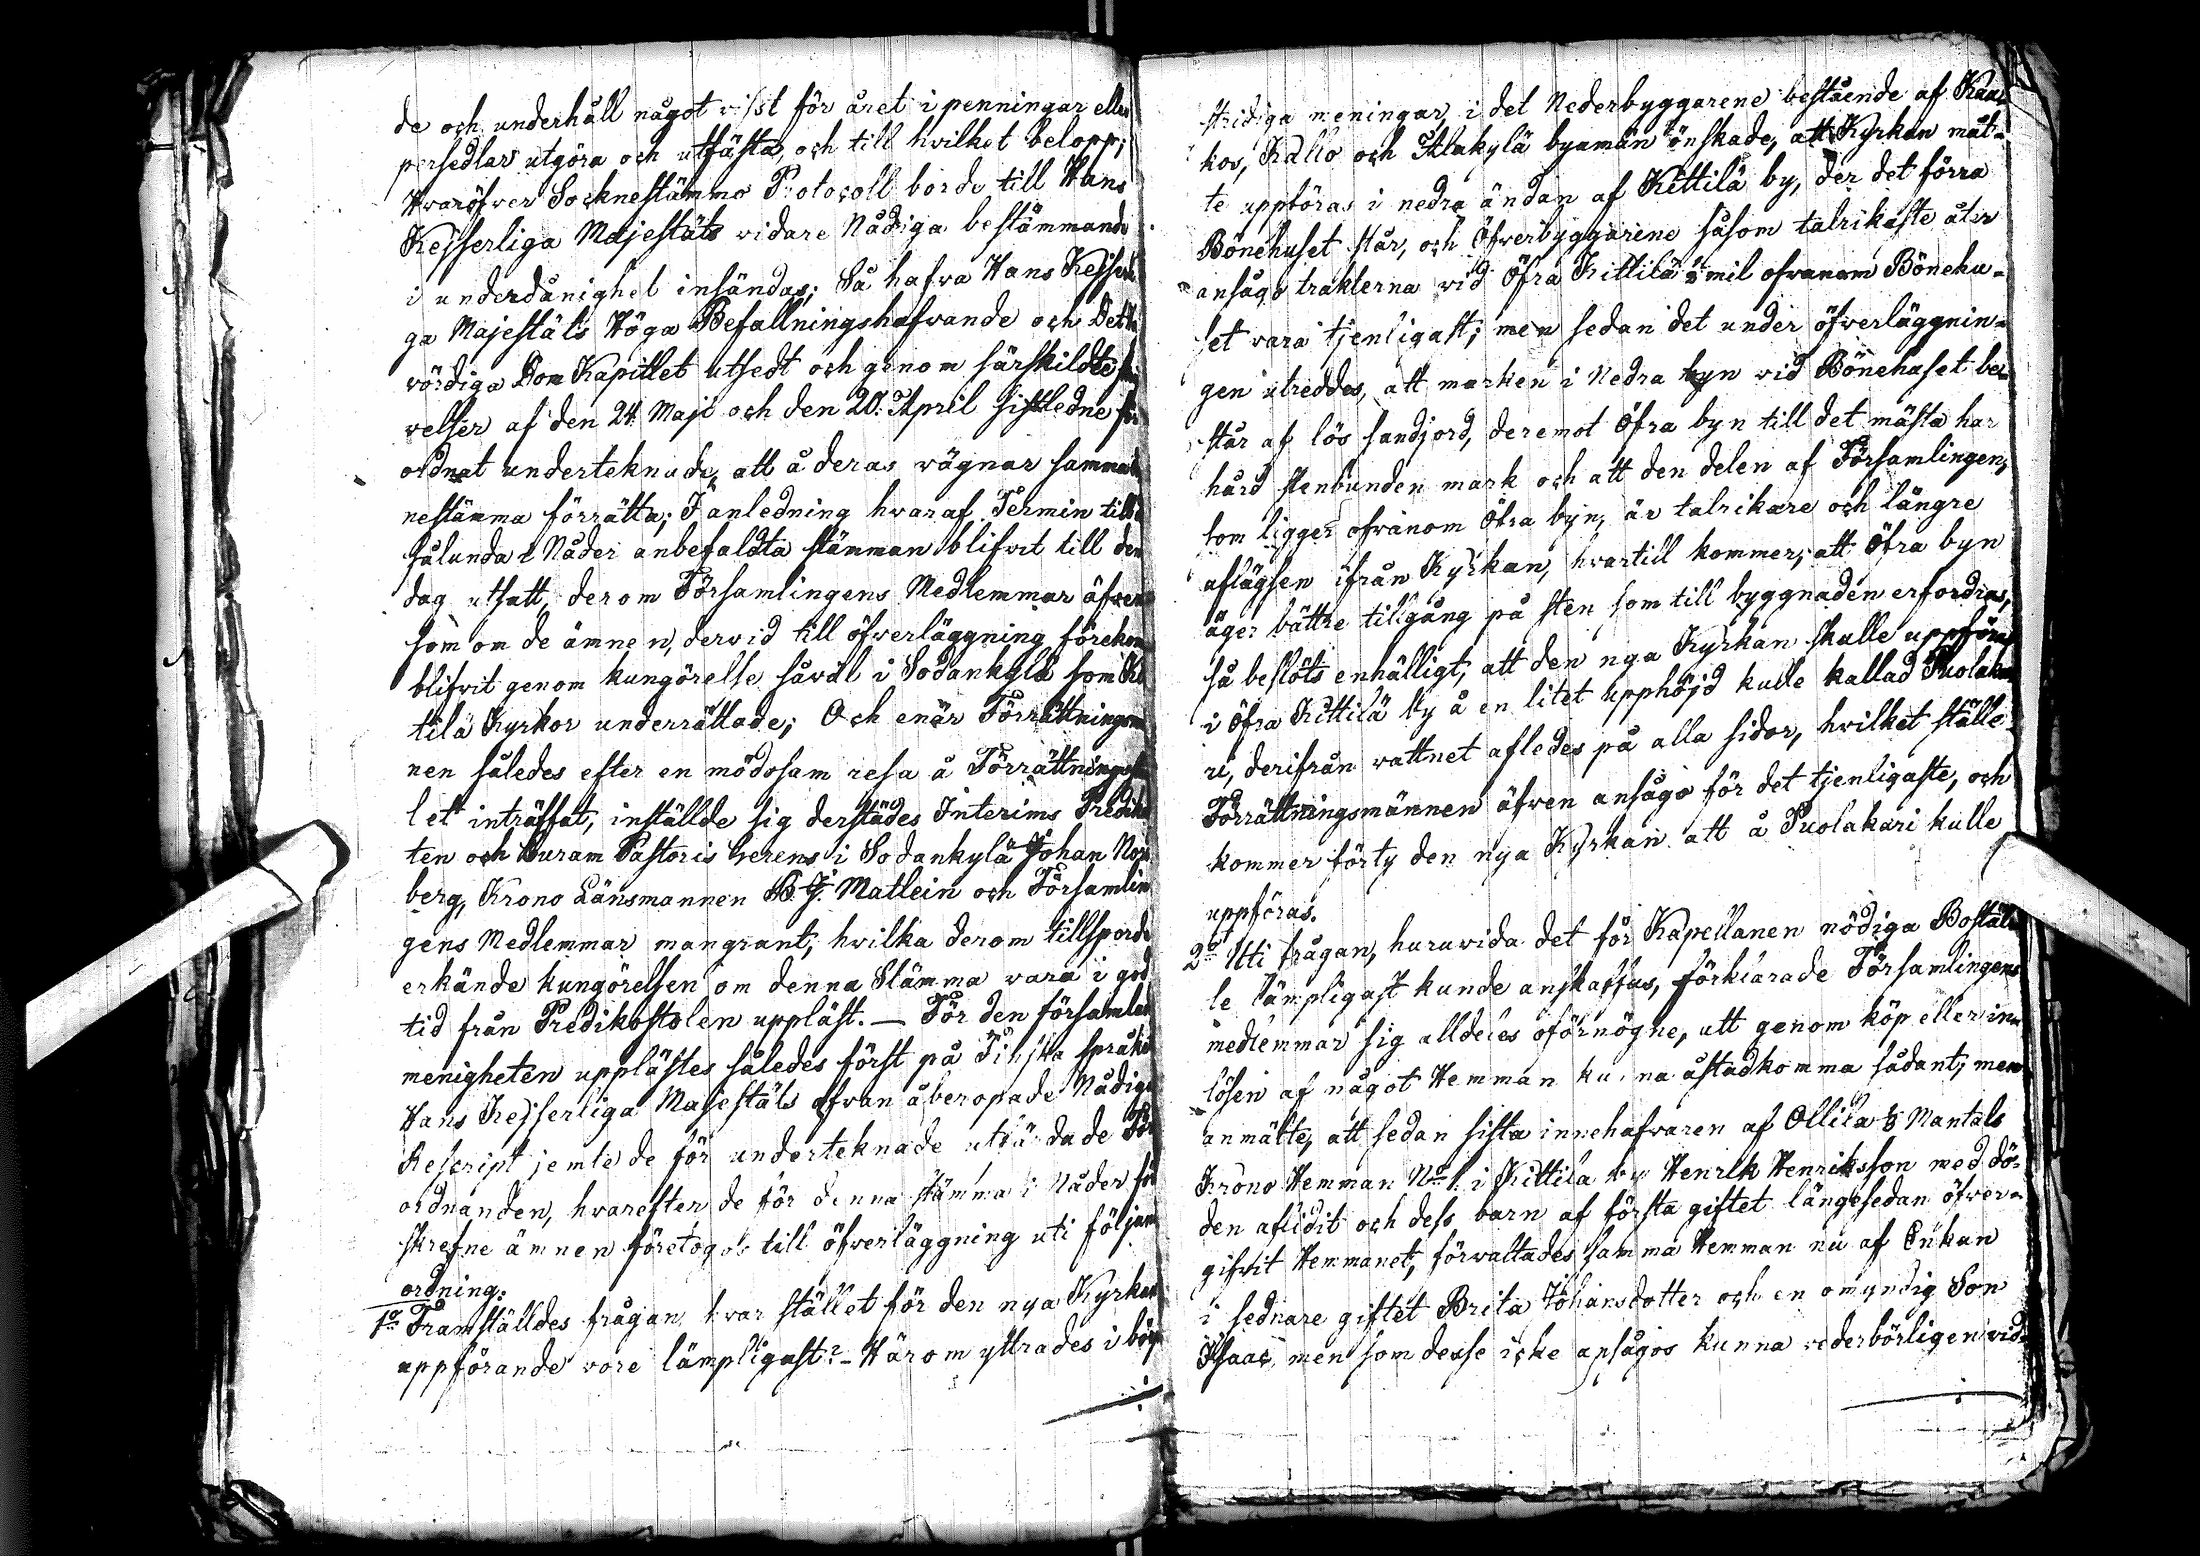 de och underhåll något visst för året i penningar eller
persedlar utgöra och utfästa, och till hvilket belopp;
Hvaröfver Socknestämmo Protocoll borde till Hans
Kejserliga Majestäts vidare Nådiga bestämmande
i underdånighet insändas; Så hafva Hans Kejserli
ga Majestäts Höga Befallningshafvande och Det
vördiga Dom Kapitlet utsedt och genom särskildte
velser af den 24 Maji och den 20. April sistledne för
ordnat undertecknade, att å deras vägnar samma
nestämma förrätta; I anledning hvaraf Termin till
sålunda i Nåder anbefaldta stämman blifvit till den
dag utsatt, derom Församlingens Medlemmar äfven
som om de ämnen, dervid till öfverläggning förekom
blifvit genom kungörelse såväl i Sodankylä som Kit
tilä Kyrkor underrättade; Och enär Förrättningsmän
nen således efter en mödosam resa å Förrättningsstäl
let inträffat, inställde sig derstädes Interims Predikan
ten och Curam Pastoris Gerens i Sodankylä Johan Nor
berg, Krono Länsmannen B. J. Matlein och Församlin
gens Medlemmar mangrant, hvilka derom tillsporde
erkände kungörelsen om denna Stämma vara i god
tid från Predikostolen uppläst. — För den församlade
menigheten upplästes således först på Finska språket
Hans Kejserliga Majestäts ofvan åberopade Nådiga
Rescript jemte de för undertecknade utfärdade För
ordnanden, hvarefter de för denna stämma i Nåder för
skrefne ämnen företogos till öfverläggning uti följande
ordning.
1o Framställdes frågan, hvar stället för den nya Kyrkans
uppförande vore lämpligast? - Härom yttrades i början
stridiga meningar, i det Nederbyggarene bestående af Kau
kos, Kallo och Alakylä byamän önskade, att Kyrkan måt-
te uppföras i nedra ändan af Kittilä by, der det förra
Bönehuset står, och Öfverbyggarene såsom talrikaste åter
ansågo trakterna vid Öfra Kittilä mil ofvanom Bönehu-
set vara tjenligast; men sedan det under öfverläggnin-
gen utreddes, att marken i Nedra byn vid Bönehuset be-
står af lös sandjord, deremot Öfra byn till det mästa har
hård stenbunden mark och att den delen af Församlingen,
som ligger ofvanom Öfra byn, är talrikare och längre
aflägsen ifrån Kyrkan, hvartill kommer, att Öfra byn
äger bättre tillgång på sten som till byggnaden erfordras,
så beslöts enhälligt, att den nya Kyrkan skulle uppföras
i Öfra Kittilä by å en litet upphöjd kulle kallad Puolaka
ri, derifrån vattnet afledes på alla sidor, hvilket ställe
Förrättningsmännen äfven ansågo för det tjenligaste, och
kommer förty den nya Kyrkan att å Puolakari kulle
uppföras.
2o Uti frågan, huruvida det för Kapellanen nödiga Boställ
le lämpligast kunde anskaffas, förklarade Församlingens
medlemmar sig alldeles oförmögne, att genom köp eller in-
lösen af något Hemman kunna åstadkomma sådant; men
anmälte, att sedan sista innehafvaren af Ollila Mantals
Krono Hemman No 1. i Kittilä by Henrik Henriksson med dö-
den aflidit och dess barn af första giftet längesedan öfver-
gifvit Hemmanet, förvaltades samma Hemman nu af Enkan
i sednare giftet Brita Johansdotter och en omyndig Son
Isaac, men som desse icke ansågos kunna vederbörligen vid-